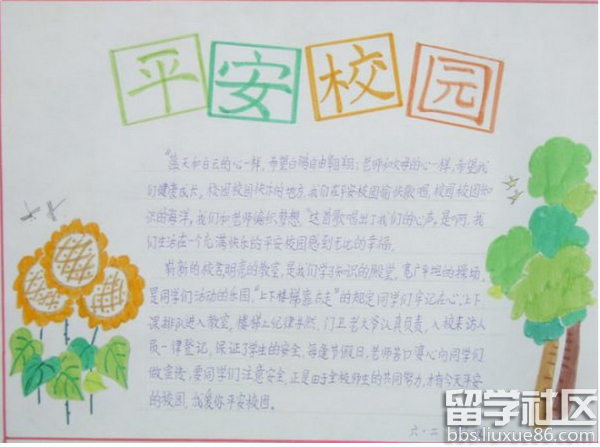 平安校园
“蓝天和白云的心一样,希望白鸽自由翱翔;老师和父母的心一样,希望我
们健康成长。校园校园快乐的地方,我们在平安校园愉快歌唱,校园校园知
识的海洋,我们和老师编织梦想。”这首歌唱出了我们的心声,是啊,我
们生活在一个充满快乐的平安校园感到无比的幸福。
崭新的校舍明亮的教室,是我们学习知识的殿堂,宽广平坦的操场,
是同学们活动的乐园,“上下楼梯靠右走”的规定同学们牢记在心,上下
课排队进入教室,楼梯上纪律井然。门卫老大爷认真负责,入校来访人
员一律登记,保证了学生的安全。每逢节假日,老师苦口婆心向同学们
做宣传,要同学们注意安全,正是由于全校师生的共同努力,才有今天平安
的校园,我爱你平安校园。
六·二
留学社区
bbs.liuxue86.com